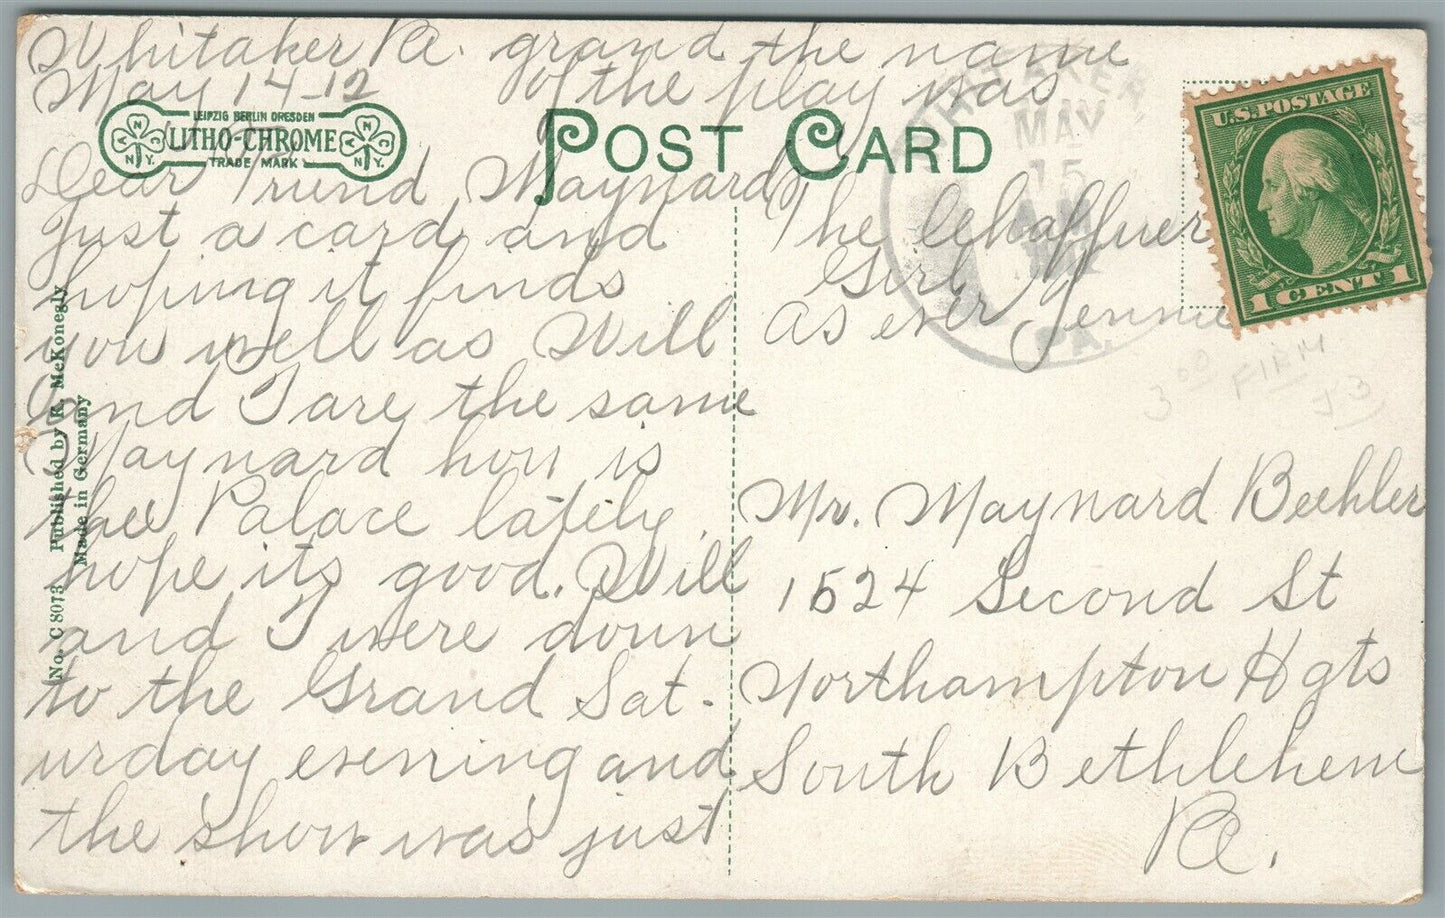 Whitaker Pa.
May 14-12
LEIPZIG BERLIN DRESDEN
LITHO-CHROME
TRADE MARK
POST CARD
Dear Friend Maynard
Just a card and
hoping it finds
you well as Will
and I are the same
Maynard how is
the Palace lately.
hope its good. Will
and I were down
to the Grand Sat-
urday evening and
the show was just
grand the name
of the play was
The Chaffuer
Girl
as ever Jennie
No. C 8013 Published by R. McKonegly
Made in Germany
WHITAKER
MAY
15
A.M.
PA.
U.S. POSTAGE
1 CENT 1
3 00 FIRM
53
Mr. Maynard Beehler
1524 Second St
Northampton Hgts
South Bethlehem
Pa.